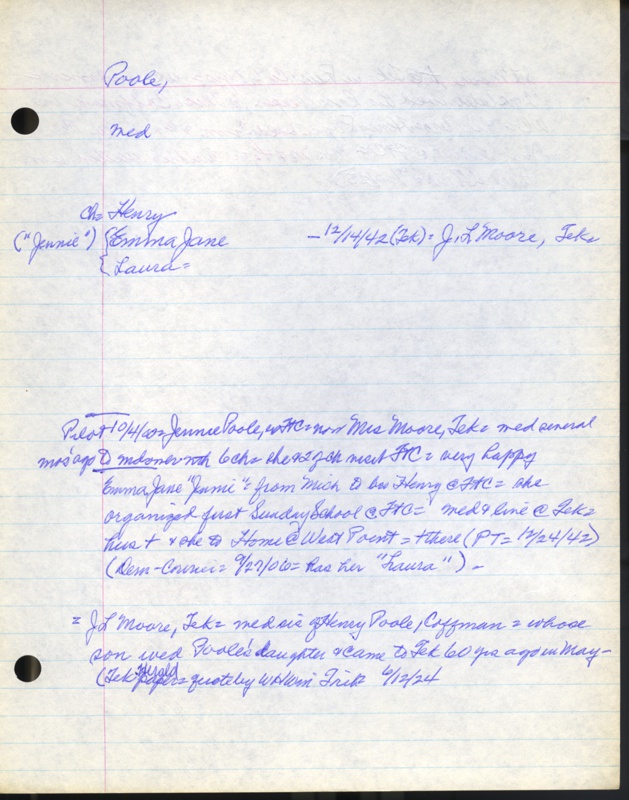 Poole,
med
ch= Henry
("Jennie") { Emma Jane - 12/14/42 (Tek) = J. L. Moore, Tek=
{ Laura =
Pilot 10/4/00= Jennie Poole, = now Mrs Moore, Tek= med several
mos ago to 6 ch = she = very happy
Emma Jane "Jennie" = from Mich to bro Henry @ = she
organized first Sunday School @ = med & live @ Tek=
hus + & she to Home @ West Point = + there (PT= 12/24/42)
(Dem-Courier= 9/27/06= has her "Laura") -
= J L Moore, Tek= med sis of Henry Poole, Coffman = whose
son wed Poole's daughter & came to Tek 60 yrs ago in May -
(Tek Herald = quote by 6/12/24